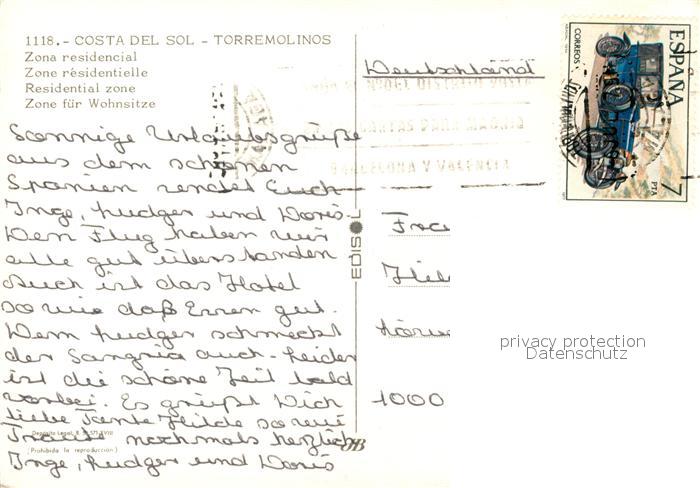 1118.- COSTA DEL SOL - TORREMOLINOS
Zona residencial
Zone résidentielle
Residential zone
Zone für Wohnsitze
Sonnige Urlaubsgrüße
aus dem schönen
Spanien sendet Euch
Inge, Ludger und Doris.
Den Flug haben wir
alle gut überstanden
Auch ist das Hotel
sowie daß Essen gut.
Dem Ludger schmeckt
der Sangria auch - Leider
ist die schöne Zeit bald
vorbei. Es grüßt Dich
liebe Tante Hilde sowie
nochmals herzlich
Inge, Ludger und Doris
Depósito Legal: B.
(Prohibida la reproducción)
EDISOL
Deutschland
DISTRITO POSTAL
CARTAS PARA MADRID
BARCELONA Y VALENCIA
CORREOS
ESPAÑA
7
PTA
1000
privacy protection
Datenschutz